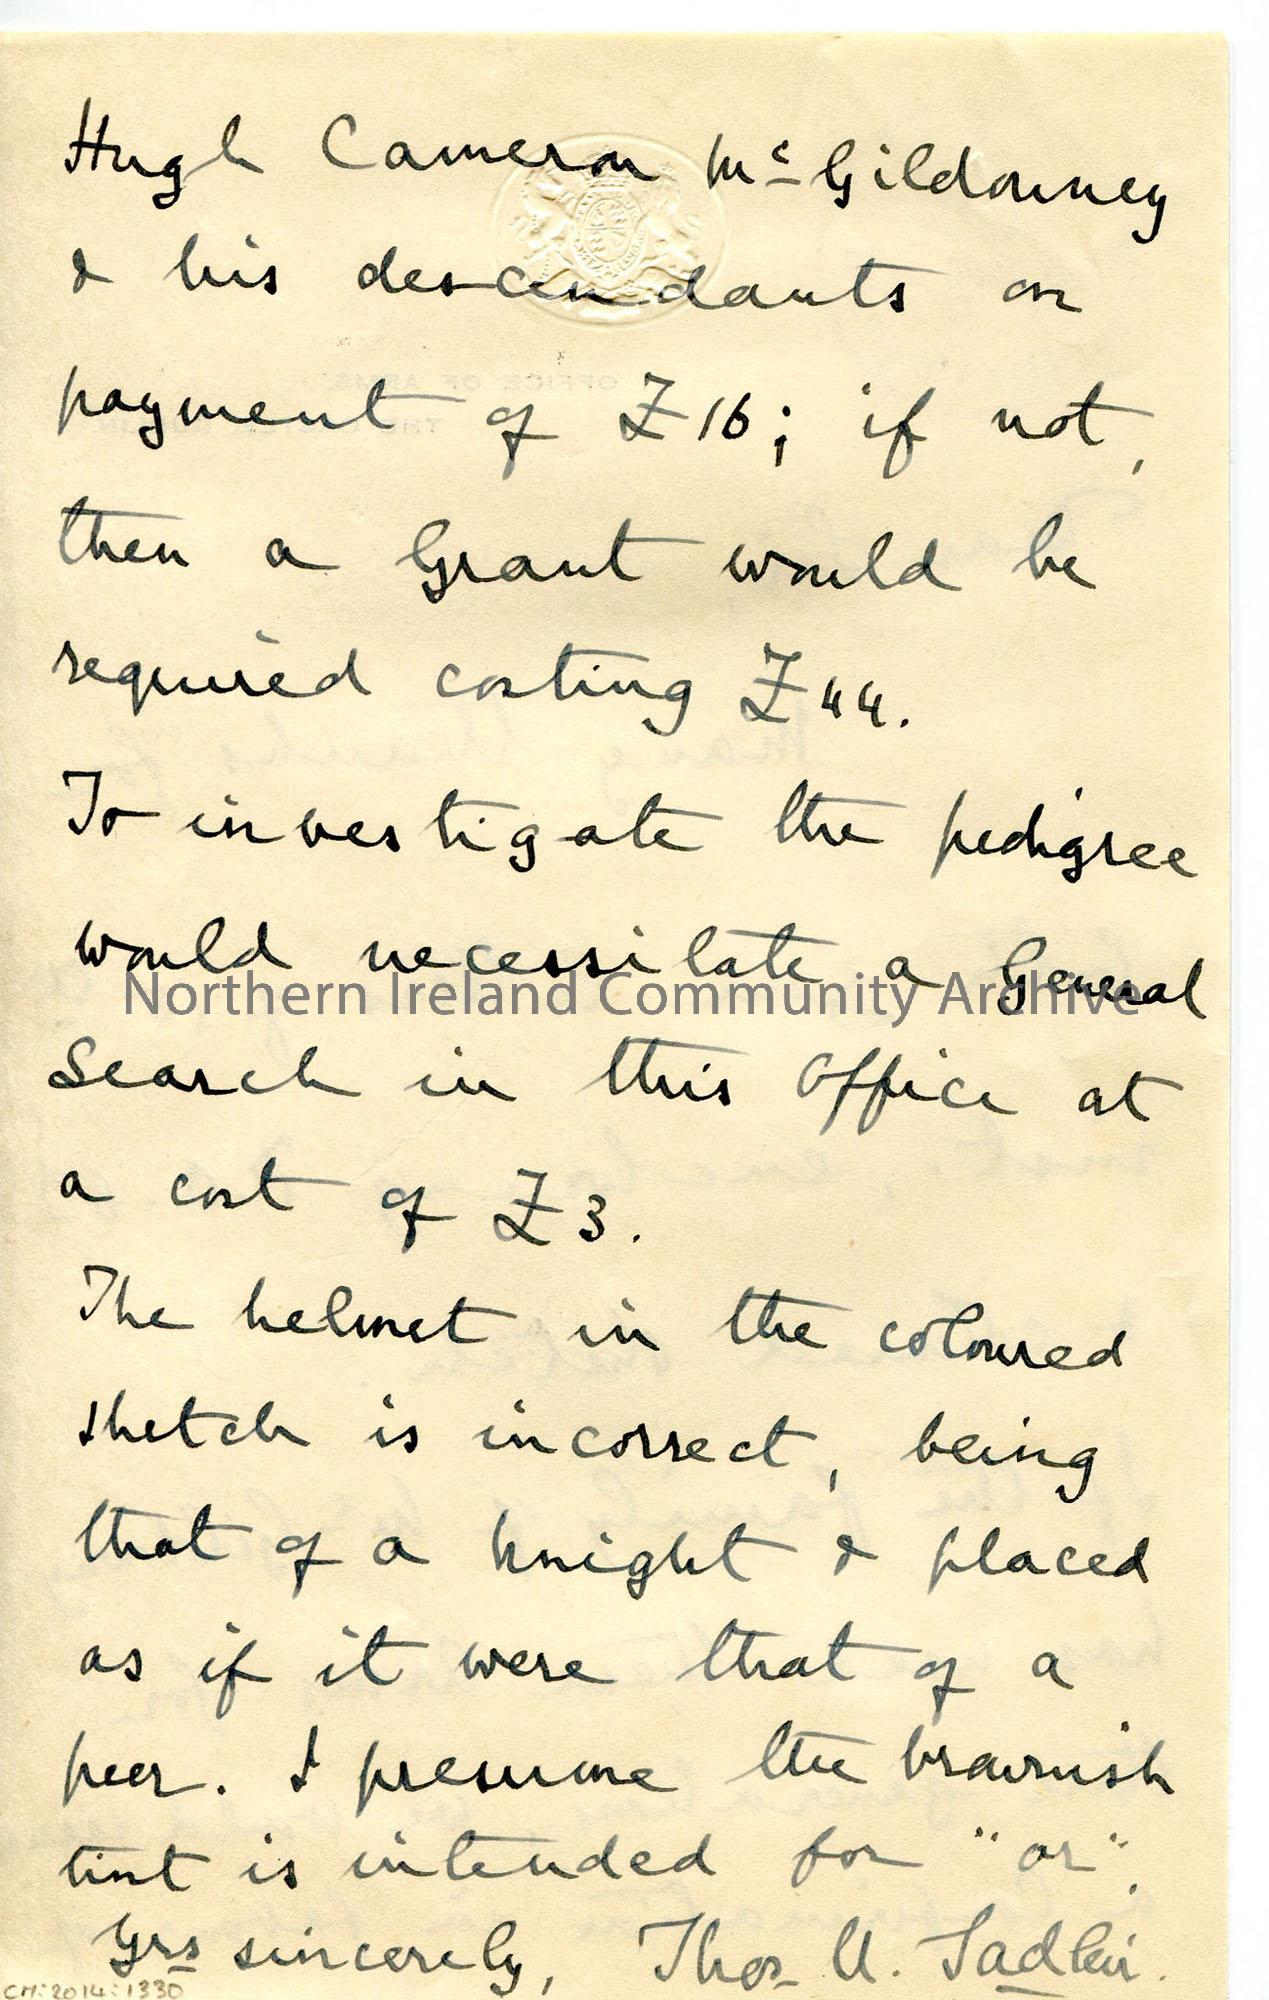 Hugh Cameron McGildowney
& his descendants on
payment of £16; if not,
then a Grant would be
required costing £44.
To investigate the pedigree
would necessitate a General
Northern Ireland Community Archive
Search in this Office at
a cost of £3.
The helmet in the coloured
sketch is incorrect, being
that of a knight & placed
as if it were that of a
peer. I presume the brownish
tint is intended for "or".
Yrs sincerely, Thos. U. Sadleir.
CM:2014:1330